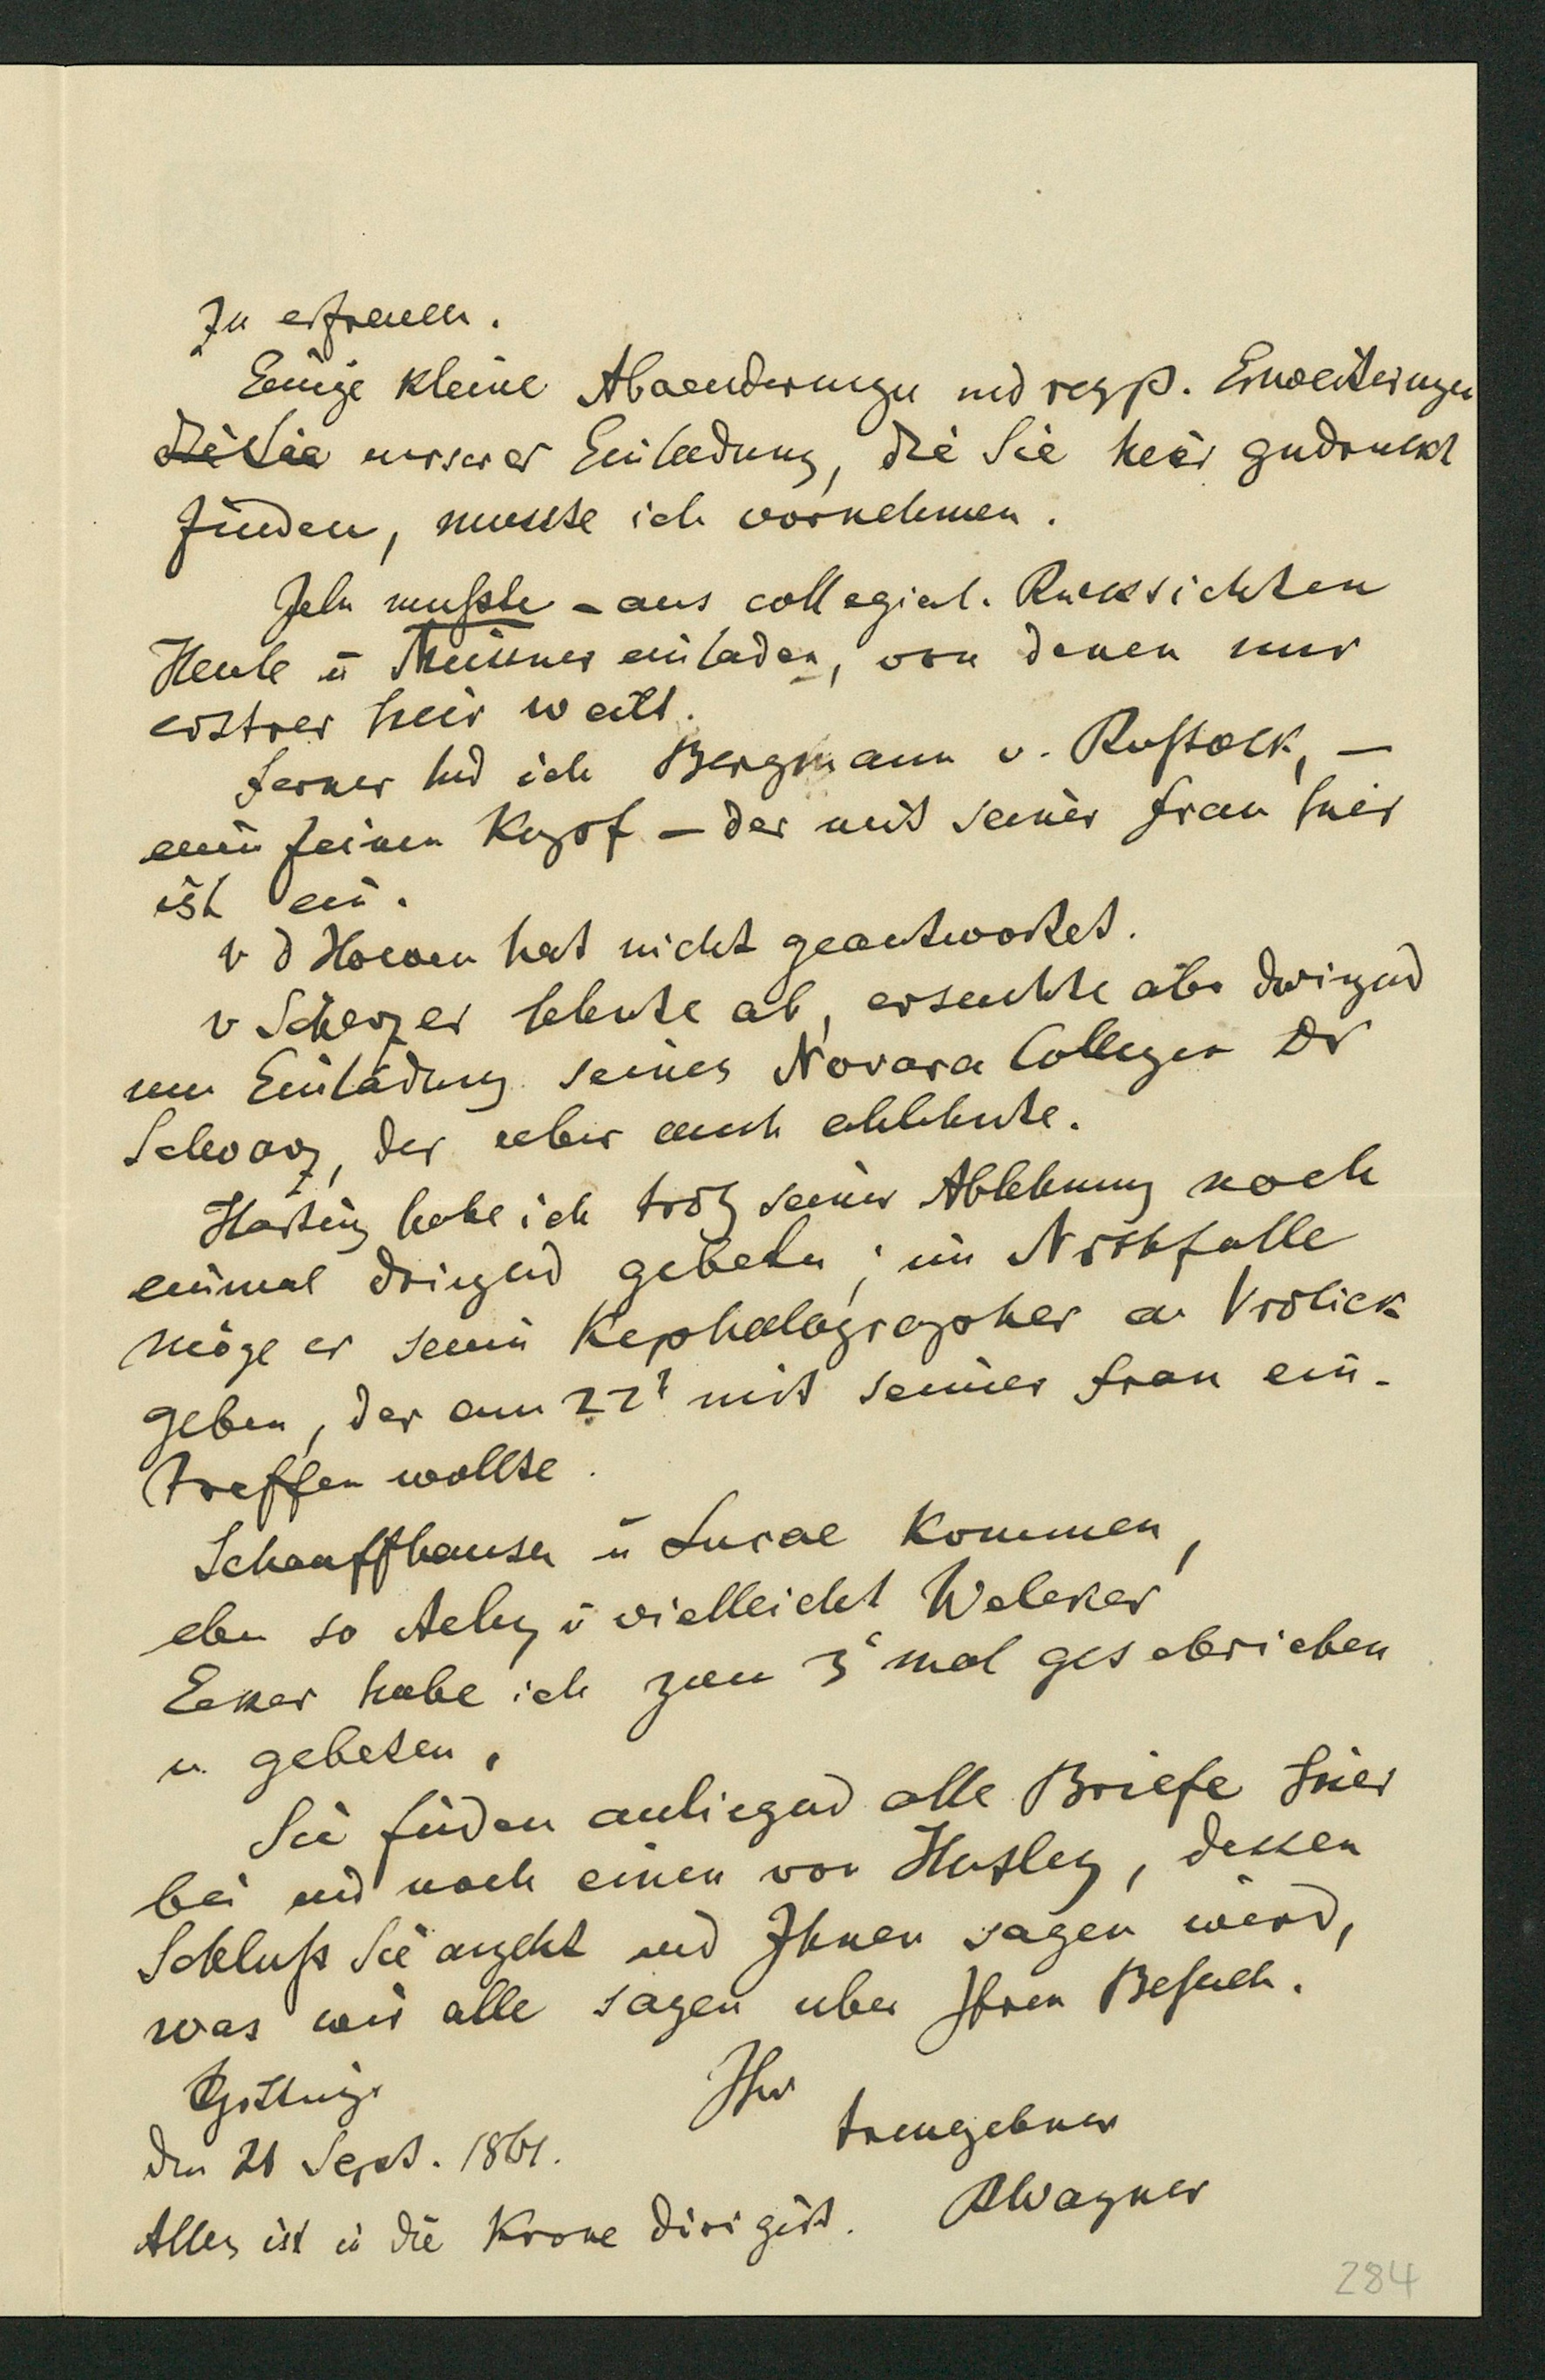 zu erfreuen.
Einige kleine Abaenderungen und resp. Erweiterungen
die Sie unserer Einladung, die Sie hier gedruckt
finden, musste ich vornehmen.
Ich mußte - aus collegial. Rucksichten
Henle u Meissner einladen, von denen nur
erstrer hier weilt.
Ferner lud ich Bergmann v. Rostock, —
ein feinen Kopf — der mit seiner Frau hier
ist ein.
v d Hoeven hat nicht geantwortet.
v Scherzer lehnte ab, ersuchte aber dringend
um Einladung seines Novara Collegen Dr
Schwarz, der aber auch ablehnte.
Harting habe ich trotz seiner Ablehnung noch
einmal dringend gebeten; im Nothfalle
möge er sein Kephalographer an Vrolick
geben, der am 22t mit seiner Frau ein-
treffen wollte.
Schaaffhausen u Lucae kommen,
eben so Aeby u vielleicht Welcker
Ecker habe ich zum 3t mal geschrieben
u. gebeten.
Sie finden anliegend alle Briefe hier
bei und noch einen von Huxley, dessen
Schluß Sie angeht und Ihnen sagen wird,
was wir alle sagen uber Ihren Besuch.
Göttingen Ihr
den 21 Sept. 1861. treuergebner
Alles ist in die Krone dirigirt. RWagner
284